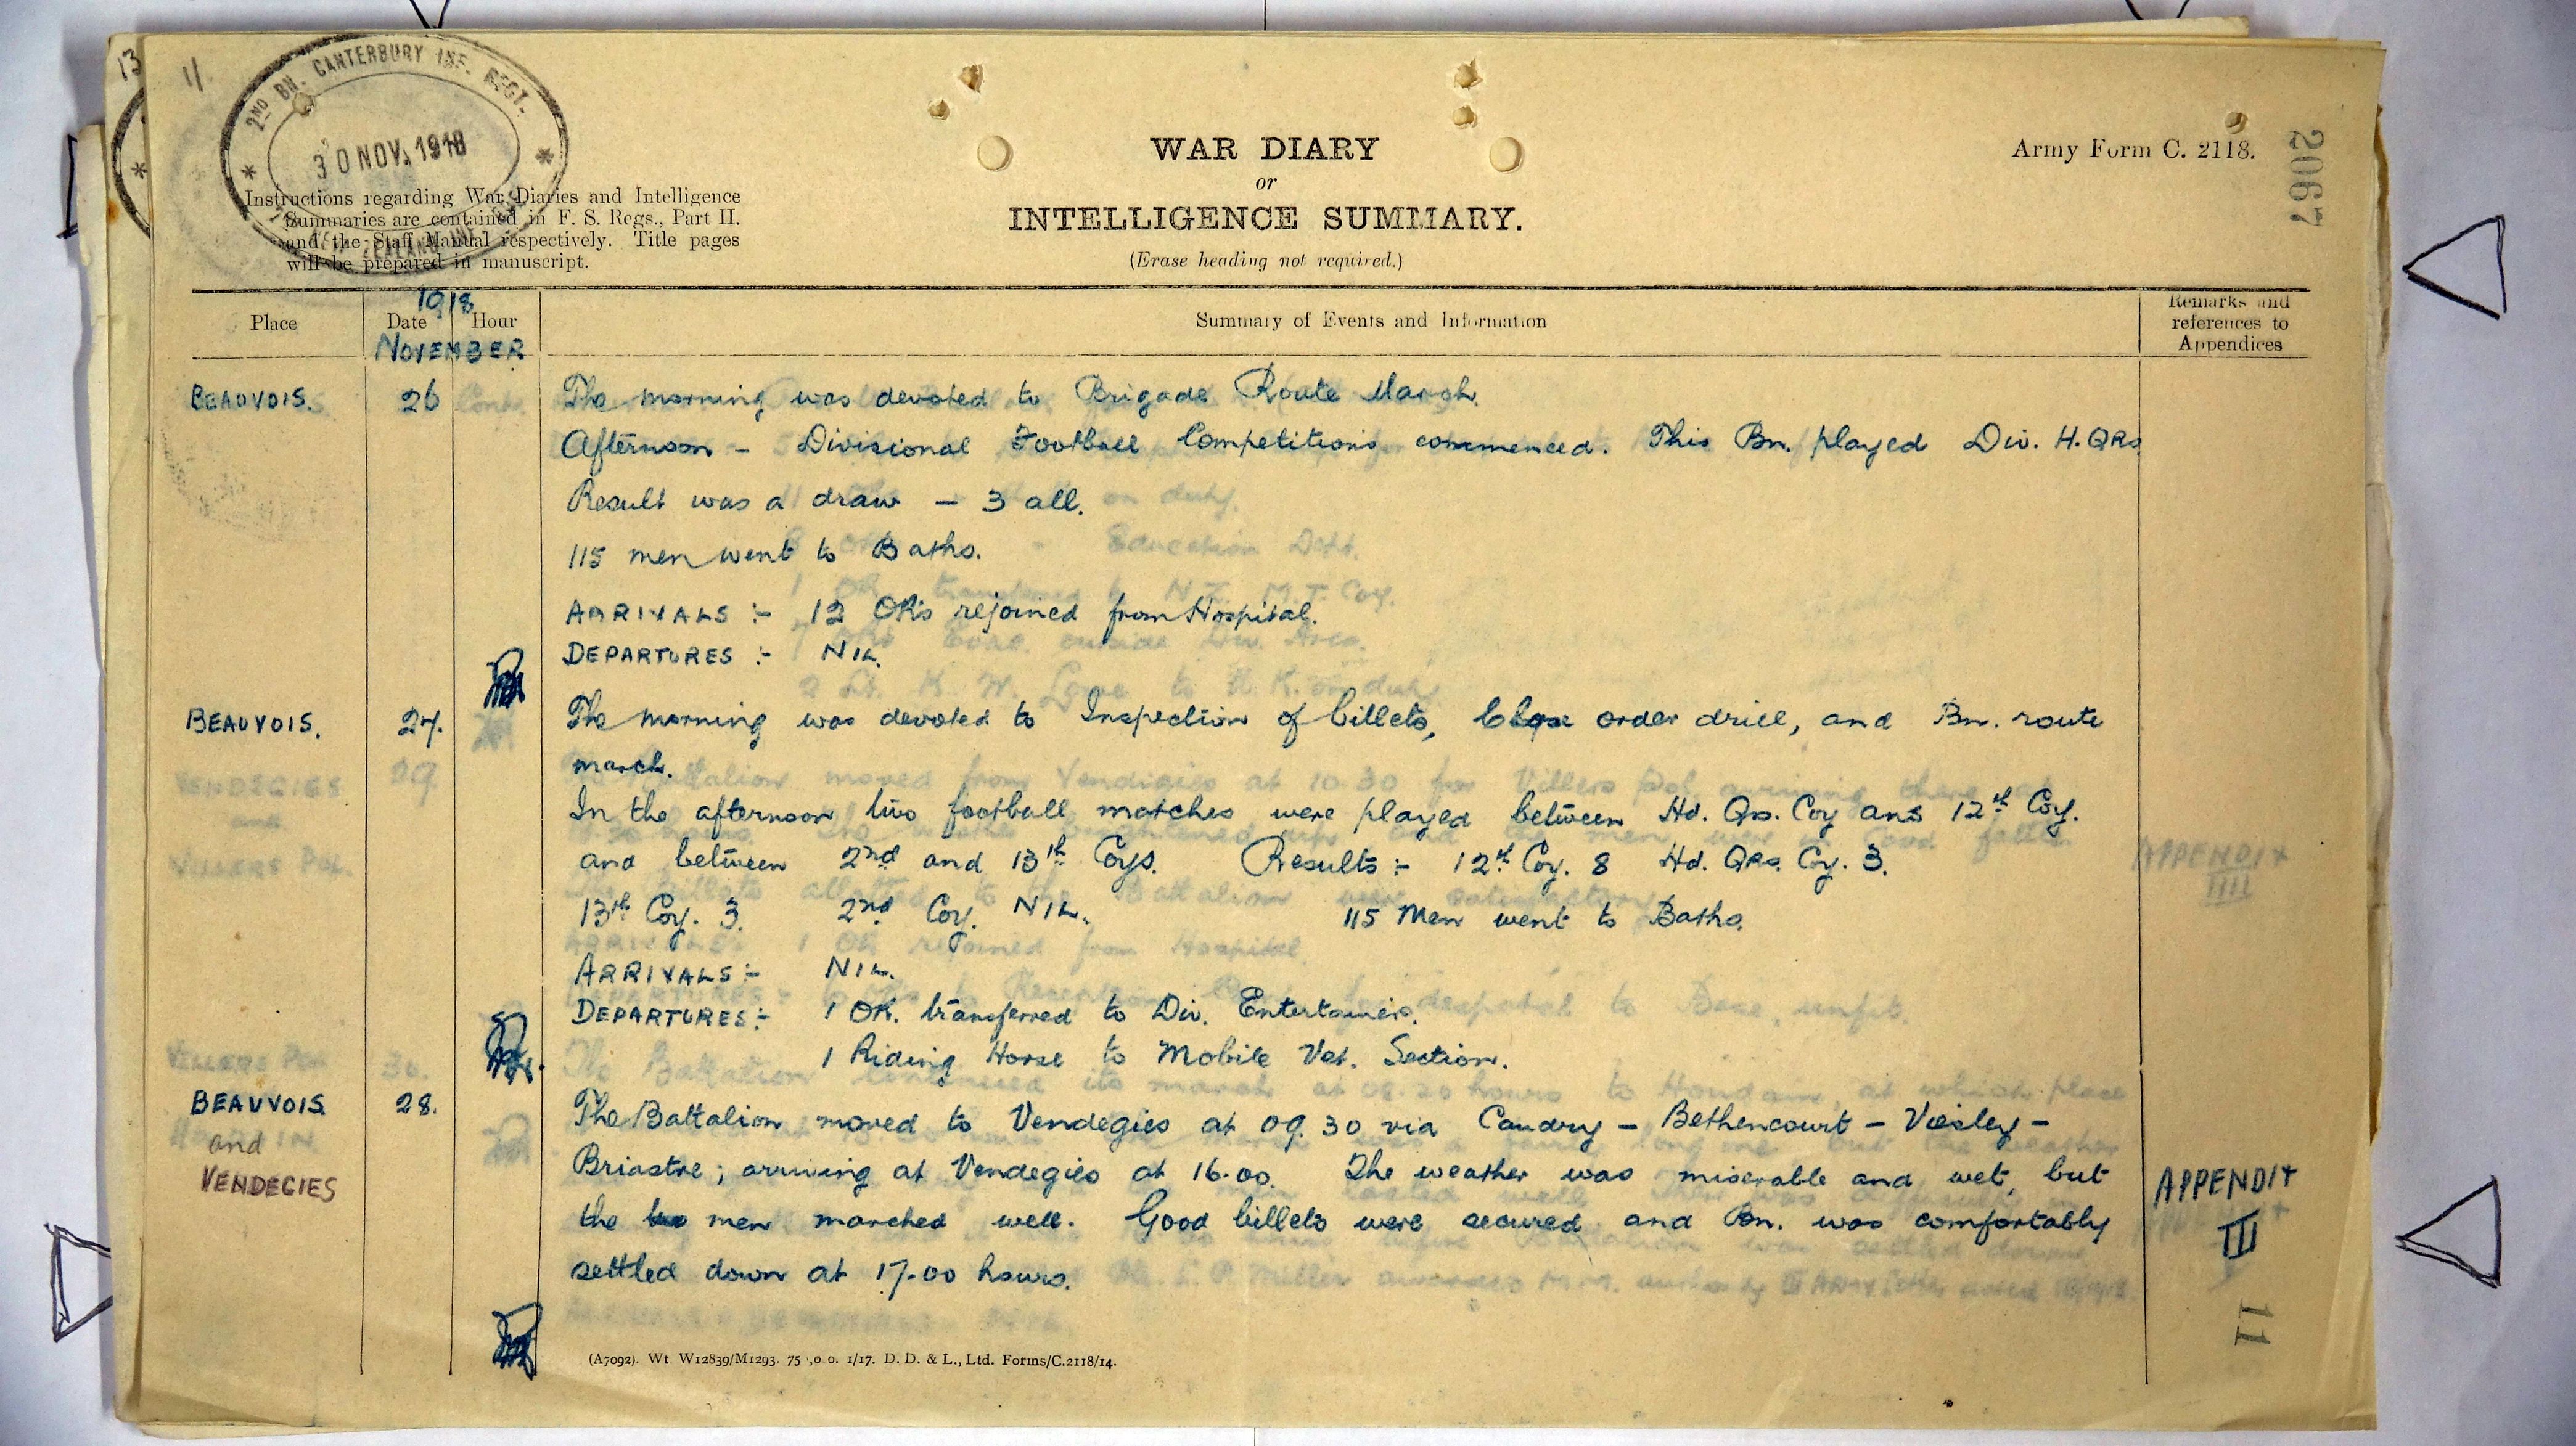 13
11.
2ND BN. CANTERBURY INF. REGT.
30 NOV. 1918
Instructions regarding War Diaries and Intelligence
Summaries are contained in F. S. Regs., Part II.
and the Staff Manual respectively. Title pages
will be prepared in manuscript.
WAR DIARY
or
INTELLIGENCE SUMMARY.
(Erase heading not required.)
Army Form C. 2118.
2067
Place
1918
Date Hour
NOVEMBER
Summary of Events and Information
Remarks and
references to
Appendices
BEAUVOIS. 26 The morning was devoted to Brigade Route March.
Afternoon - Divisional Football Competitions commenced. This Bn. played Div. H.QRs
Result was a draw - 3 all.
115 men went to Baths.
ARRIVALS :- 12 ORs rejoined from Hospital.
DEPARTURES :- NIL.
BEAUVOIS. 27. The morning was devoted to Inspection of billets, Close order drill, and Bn. route
march.
In the afternoon two football matches were played between Hd. Qrs. Coy and 12th Coy.
and between 2nd and 13th Coys. Results :- 12th Coy. 8 Hd. QRs. Coy. 3.
13th Coy. 3. 2nd Coy. NIL. 115 Men went to Baths.
ARRIVALS :- NIL.
DEPARTURES :- 1 OR. transferred to Div. Entertainers.
1 Riding Horse to Mobile Vet. Section.
BEAUVOIS 28. The Battalion moved to Vendegies at 09.30 via Caudry - Bethencourt - Viesley -
and
VENDEGIES Briastre; arriving at Vendegies at 16.00. The weather was miserable and wet, but
the men marched well. Good billets were secured and Bn. was comfortably
settled down at 17.00 hours.
APPENDIX
III
11
(A7092). Wt. W12839/M1293. 75 ,0 0. 1/17. D. D. & L., Ltd. Forms/C.2118/14.